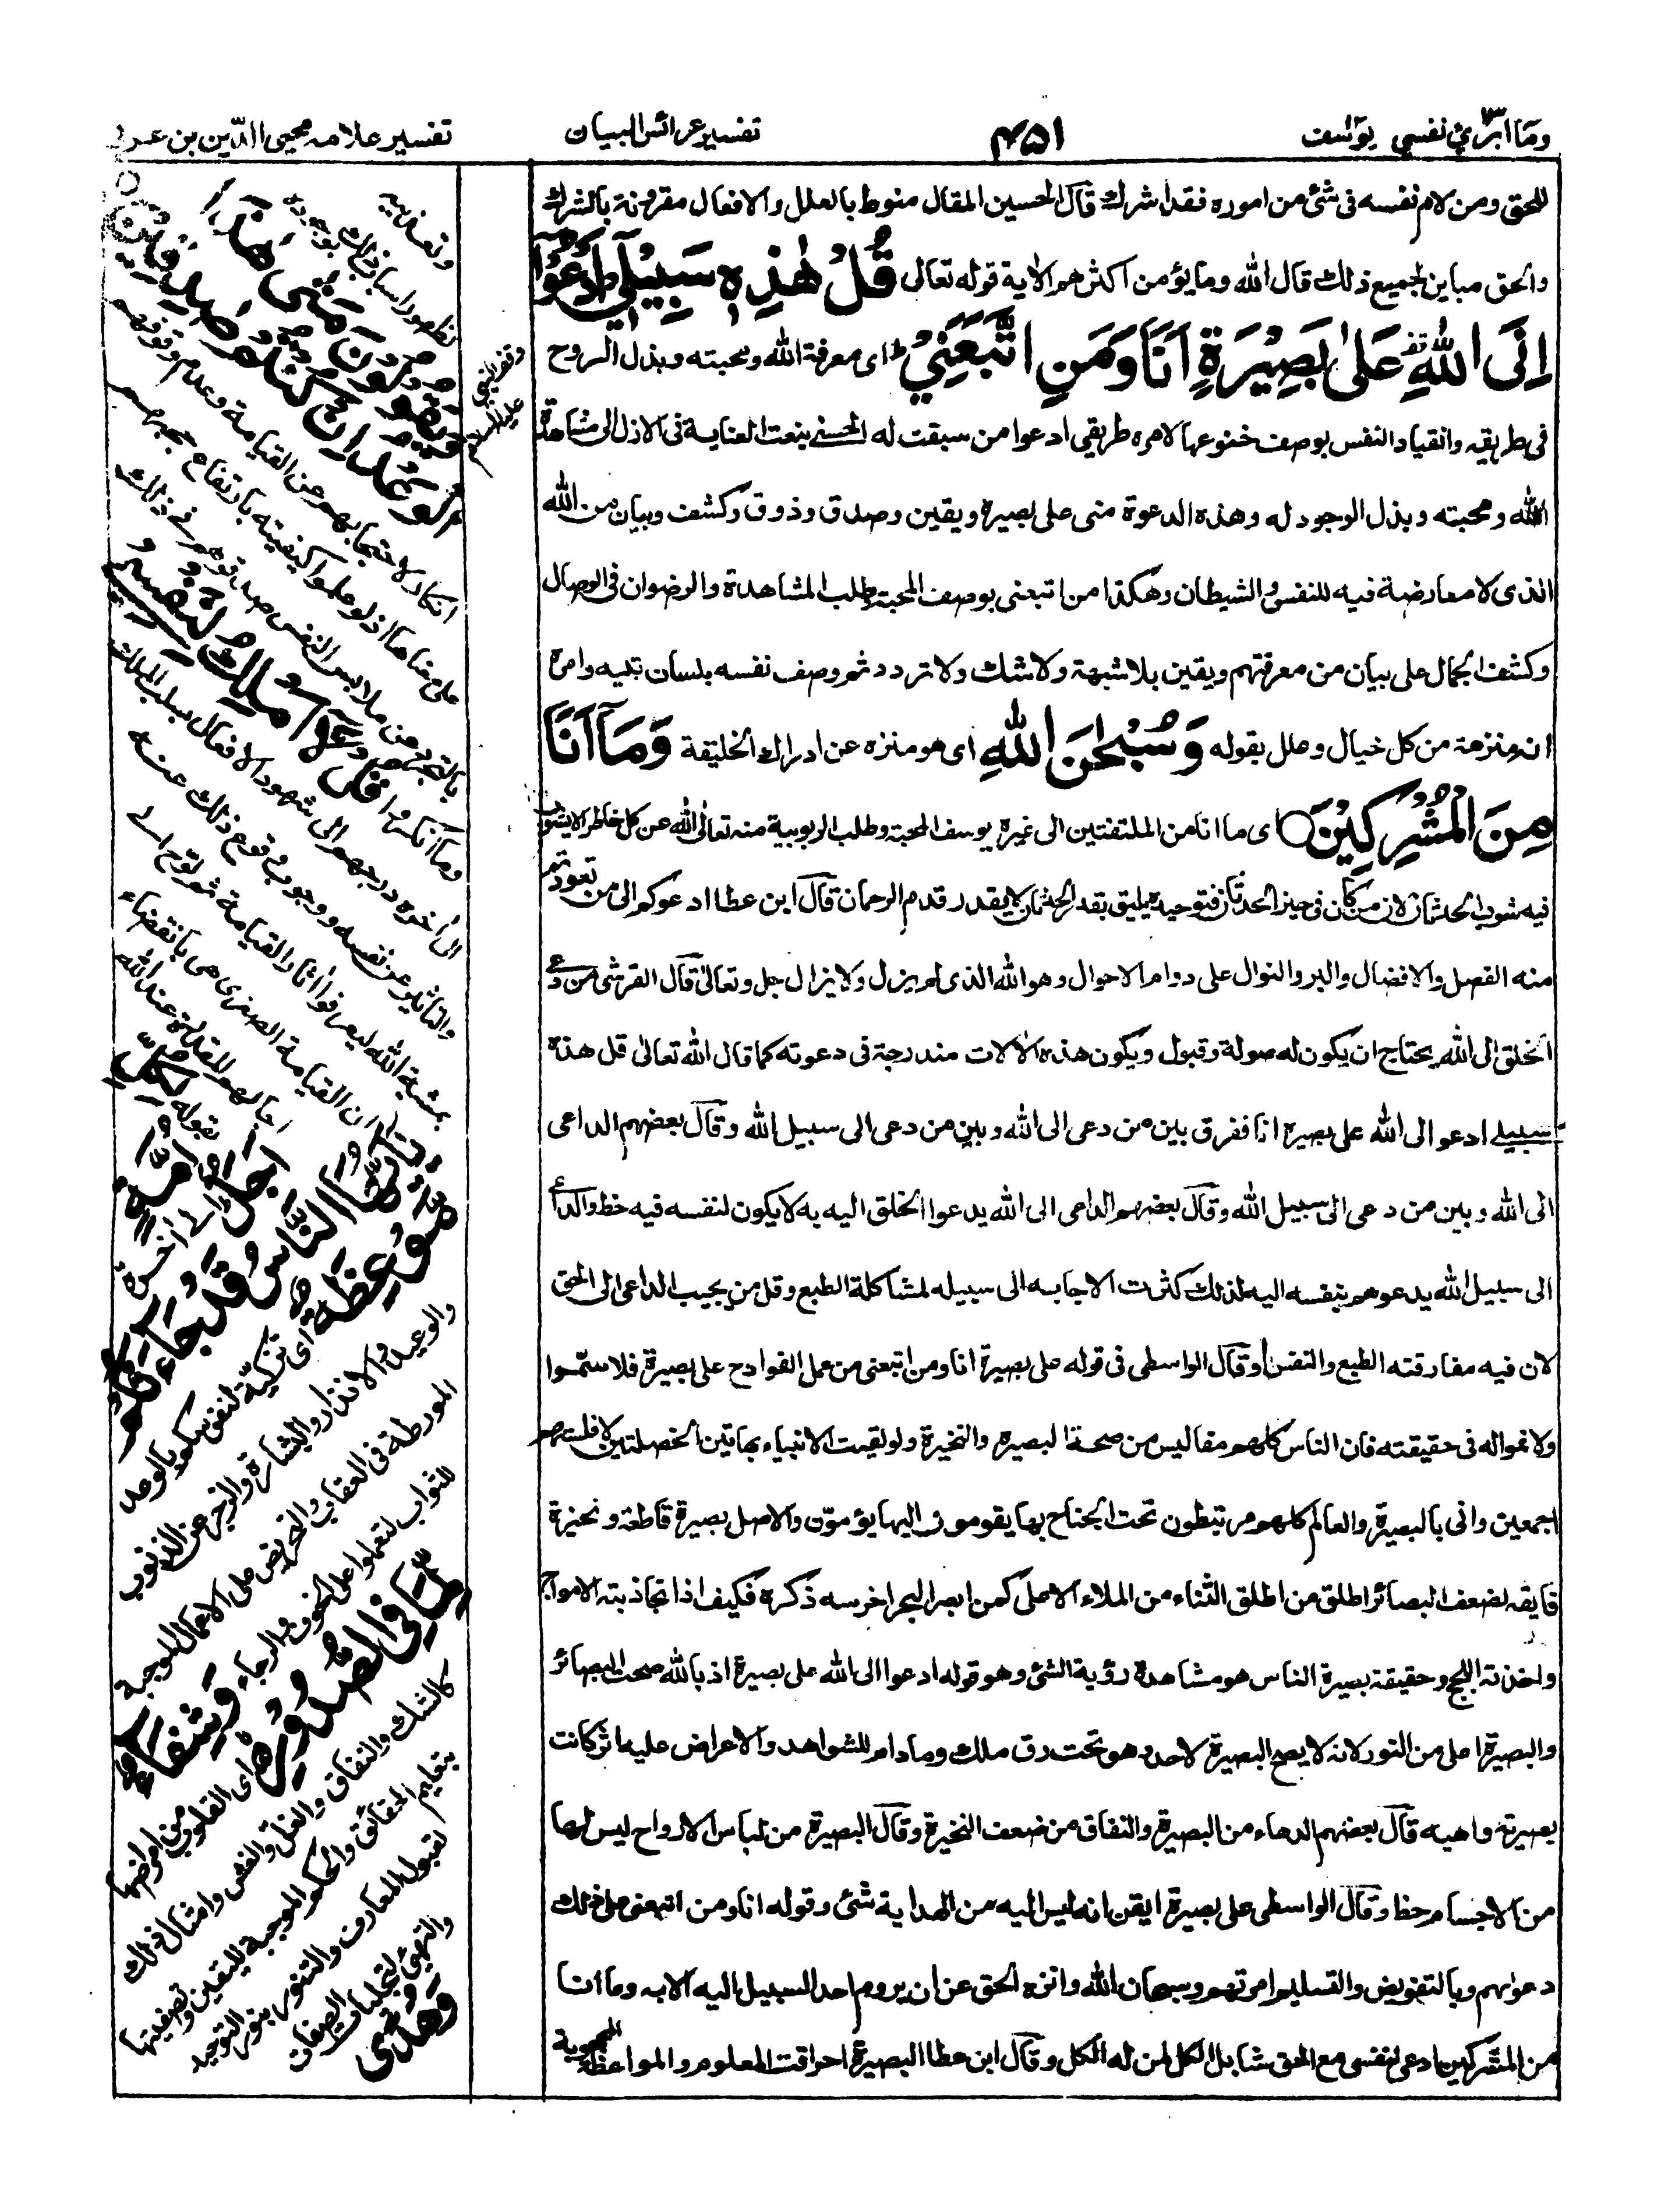 وما ابرئ نفسي يوسف
٤٥١
تفسير عرائس البيان
تفسير علامه محيى الدّين بن عربي
للحق ومن لام نفسه فى شئ من اموره فقد اشرك قال الحسين المقال منوط بالعلل والافعال مقرونة بالشرك
والحق مباين لجميع ذلك قال الله وما يؤمن اكثرهم الاية قوله تعالى قُلْ هٰذِهٖ سَبِيْلِيْ اَدْعُوْٓا
اِلَى اللّٰهِ عَلٰى بَصِيْرَةٍ اَنَا وَمَنِ اتَّبَعَنِيْ ط اى معرفة الله ومحبته وبذل الروح
فى طريقه وانقياد النفس بوصف خنوعها لامره طريقي ادعوا من سبقت له الحسنى بنعت العناية فى الازل الى مشاهدة
الله ومحبته وبذل الوجود له وهذه الدعوة منى على بصيرة ويقين وصدق وذوق وكشف وبيان من الله
الذى لا معارضة فيه للنفس والشيطان وهكذا من اتبعنى بوصف المحبة وطلب المشاهدة والرضوان فى الوصال
وكشف الجمال على بيان من معرفتهم ويقين بلا شبهة ولا شك ولا تردد ثم وصف نفسه بلسان نبيه وامره
ان منزهة من كل خيال وعلل بقوله وَسُبْحٰنَ اللّٰهِ اى هو منزه عن ادراك الخليقة وَمَآ اَنَا
مِنَ الْمُشْرِكِيْنَ اى ما انا من الملتفتين الى غيره بوسف المحبة وطلب الربوبية منه تعالى الله عن كل خاطر
فيه شوب الحدثان لان من كان فى حيز الحدثان فتوحيده يليق بقدر الحدثان لا يقدر قدم الرحمان قال ابن عطا ادعوكم الى من تعودتم
منه الفصل والافضال والبر والنوال على دوام الاحوال وهو الله الذى لم يزل ولا يزال جل وتعالى قال القرشى من دعى
الخلق الى الله يحتاج ان يكون له صولة وقبول ويكون هذه الالات مندرجة فى دعوته كما قال الله تعالى قل هذه
سبيلى ادعو الى الله على بصيرة انا ففرق بين من دعى الى الله وبين من دعى الى سبيل الله وقال بعضهم الداعى
الى الله وبين من دعى الى سبيل الله وقال بعضهم الداعى الى الله يدعوا الخلق اليه به لا يكون لنفسه فيه حظ والداعى
الى سبيل الله يدعوهم بنفسه اليه لذلك كثرت الاجابه الى سبيله لمشاكلة الطبع وقل من يجيب الداعى الى الحق
لان فيه مفارقته الطبع والنفس وقال الواسطى فى قوله على بصيرة انا ومن اتبعنى من عمل القوادح على بصيرة فلا
ولا فى حقيقته فان الناس كلهم مفاليس من صحة البصيرة والنخيرة ولو لقيت الانبياء بهاتين الخصلتين لافلستهم
اجمعين وانى بالبصيرة والعالم كلهم مرتبطون تحت الجناح بها يقومون اليها يؤمون والاصل بصيرة قاطعة ونخيرة
فايقه لضعف البصائر اطلق من اطلق الثناء من الملاء الاعلى كمن ابصر البحر اخرسه ذكره فكيف اذا تجاذبته الامواج
واخذته اللجج وحقيقة بصيرة الناس هو مشاهدة رؤية الشئ وهو قوله ادعوا الى الله على بصيرة اذ بالله صحت البصائر
والبصيرة اعلى من النور لانه لا يصح البصيرة لاحد وهو تحت رق ملك وما دام للشواهد والاعراض عليه اثر كانت
بصيرته واهيه قال بعضهم الدعاء من البصيرة والنفاق من ضعف النخيرة وقال البصيرة من لباس الارواح ليس لها
من الاجسام حظ وقال الواسطى على بصيرة ايقن انه ليس اليه من الهداية شئ وقوله انا ومن اتبعنى على ذلك
دعوتهم وبالتفويض والتسليم امرتهم وسبحان الله وانزه الحق عن ان يروم احد السبيل اليه الا به وما انا
من المشركين ادعى لنفسى مع الحق شئا بل الكل لمن له الكل وقال ابن عطا البصيرة احراقت المعلوم والمواعظ
وقف النبى
عليه السلام
انكار لاحتجابهم عن القيامة وعدم وقوفهم
على معناها اذ لو علموا كيفيته بارتفاع حجبهم
بالتجرد عن ملابس النفس صدقوهم فى ذلك
وما انكروا قُلْ لَّآ اَمْلِكُ لِنَفْسِيْ
الى اخره درجهم الى شهود الافعال بسلب الملك
والتاثير عن نفسه ووجوب وقوع ذلك عنه
بمشية الله ليعرفوا اثار القيامة ثم لوح الى
ان القيامة الصغرى هى بانقضاء
اجالهم المقدرة عند الله
بقوله لِكُلِّ
اُمَّةٍ اَجَلٌ الى اخره
يٰٓاَيُّهَا النَّاسُ قَدْ جَآءَتْكُمْ
مَّوْعِظَةٌ اى تزكية لنفوسكم بالوعد
والوعيد والانذار والبشارة والزجر عن الذنوب
المورطة فى العقاب والتحريض على الاعمال الموجبة
للثواب لتعملوا على الخوف والرجاء وَشِفَآءٌ
لِّمَا فِى الصُّدُوْرِ اى القلوب من امراضها
كالشك والنفاق والغل والغش وامثال ذلك
بتعليم الحقائق والحكم الموجبة لليقين وتصفيتها
لقبول المعارف والتنور بنور التوحيد
والتهيئ لتجليات الصفات
وَهُدًى